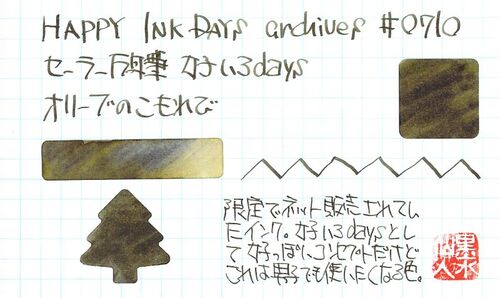 HAPPY INK DAYS archives #0710
セーラー万年筆 女子いろdays
オリーブのこもれび
限定でネット販売されてい
たインク。女子いろdaysとし
て女子っぽいコンセプトだけど
これは男子でも使いたくなる色。